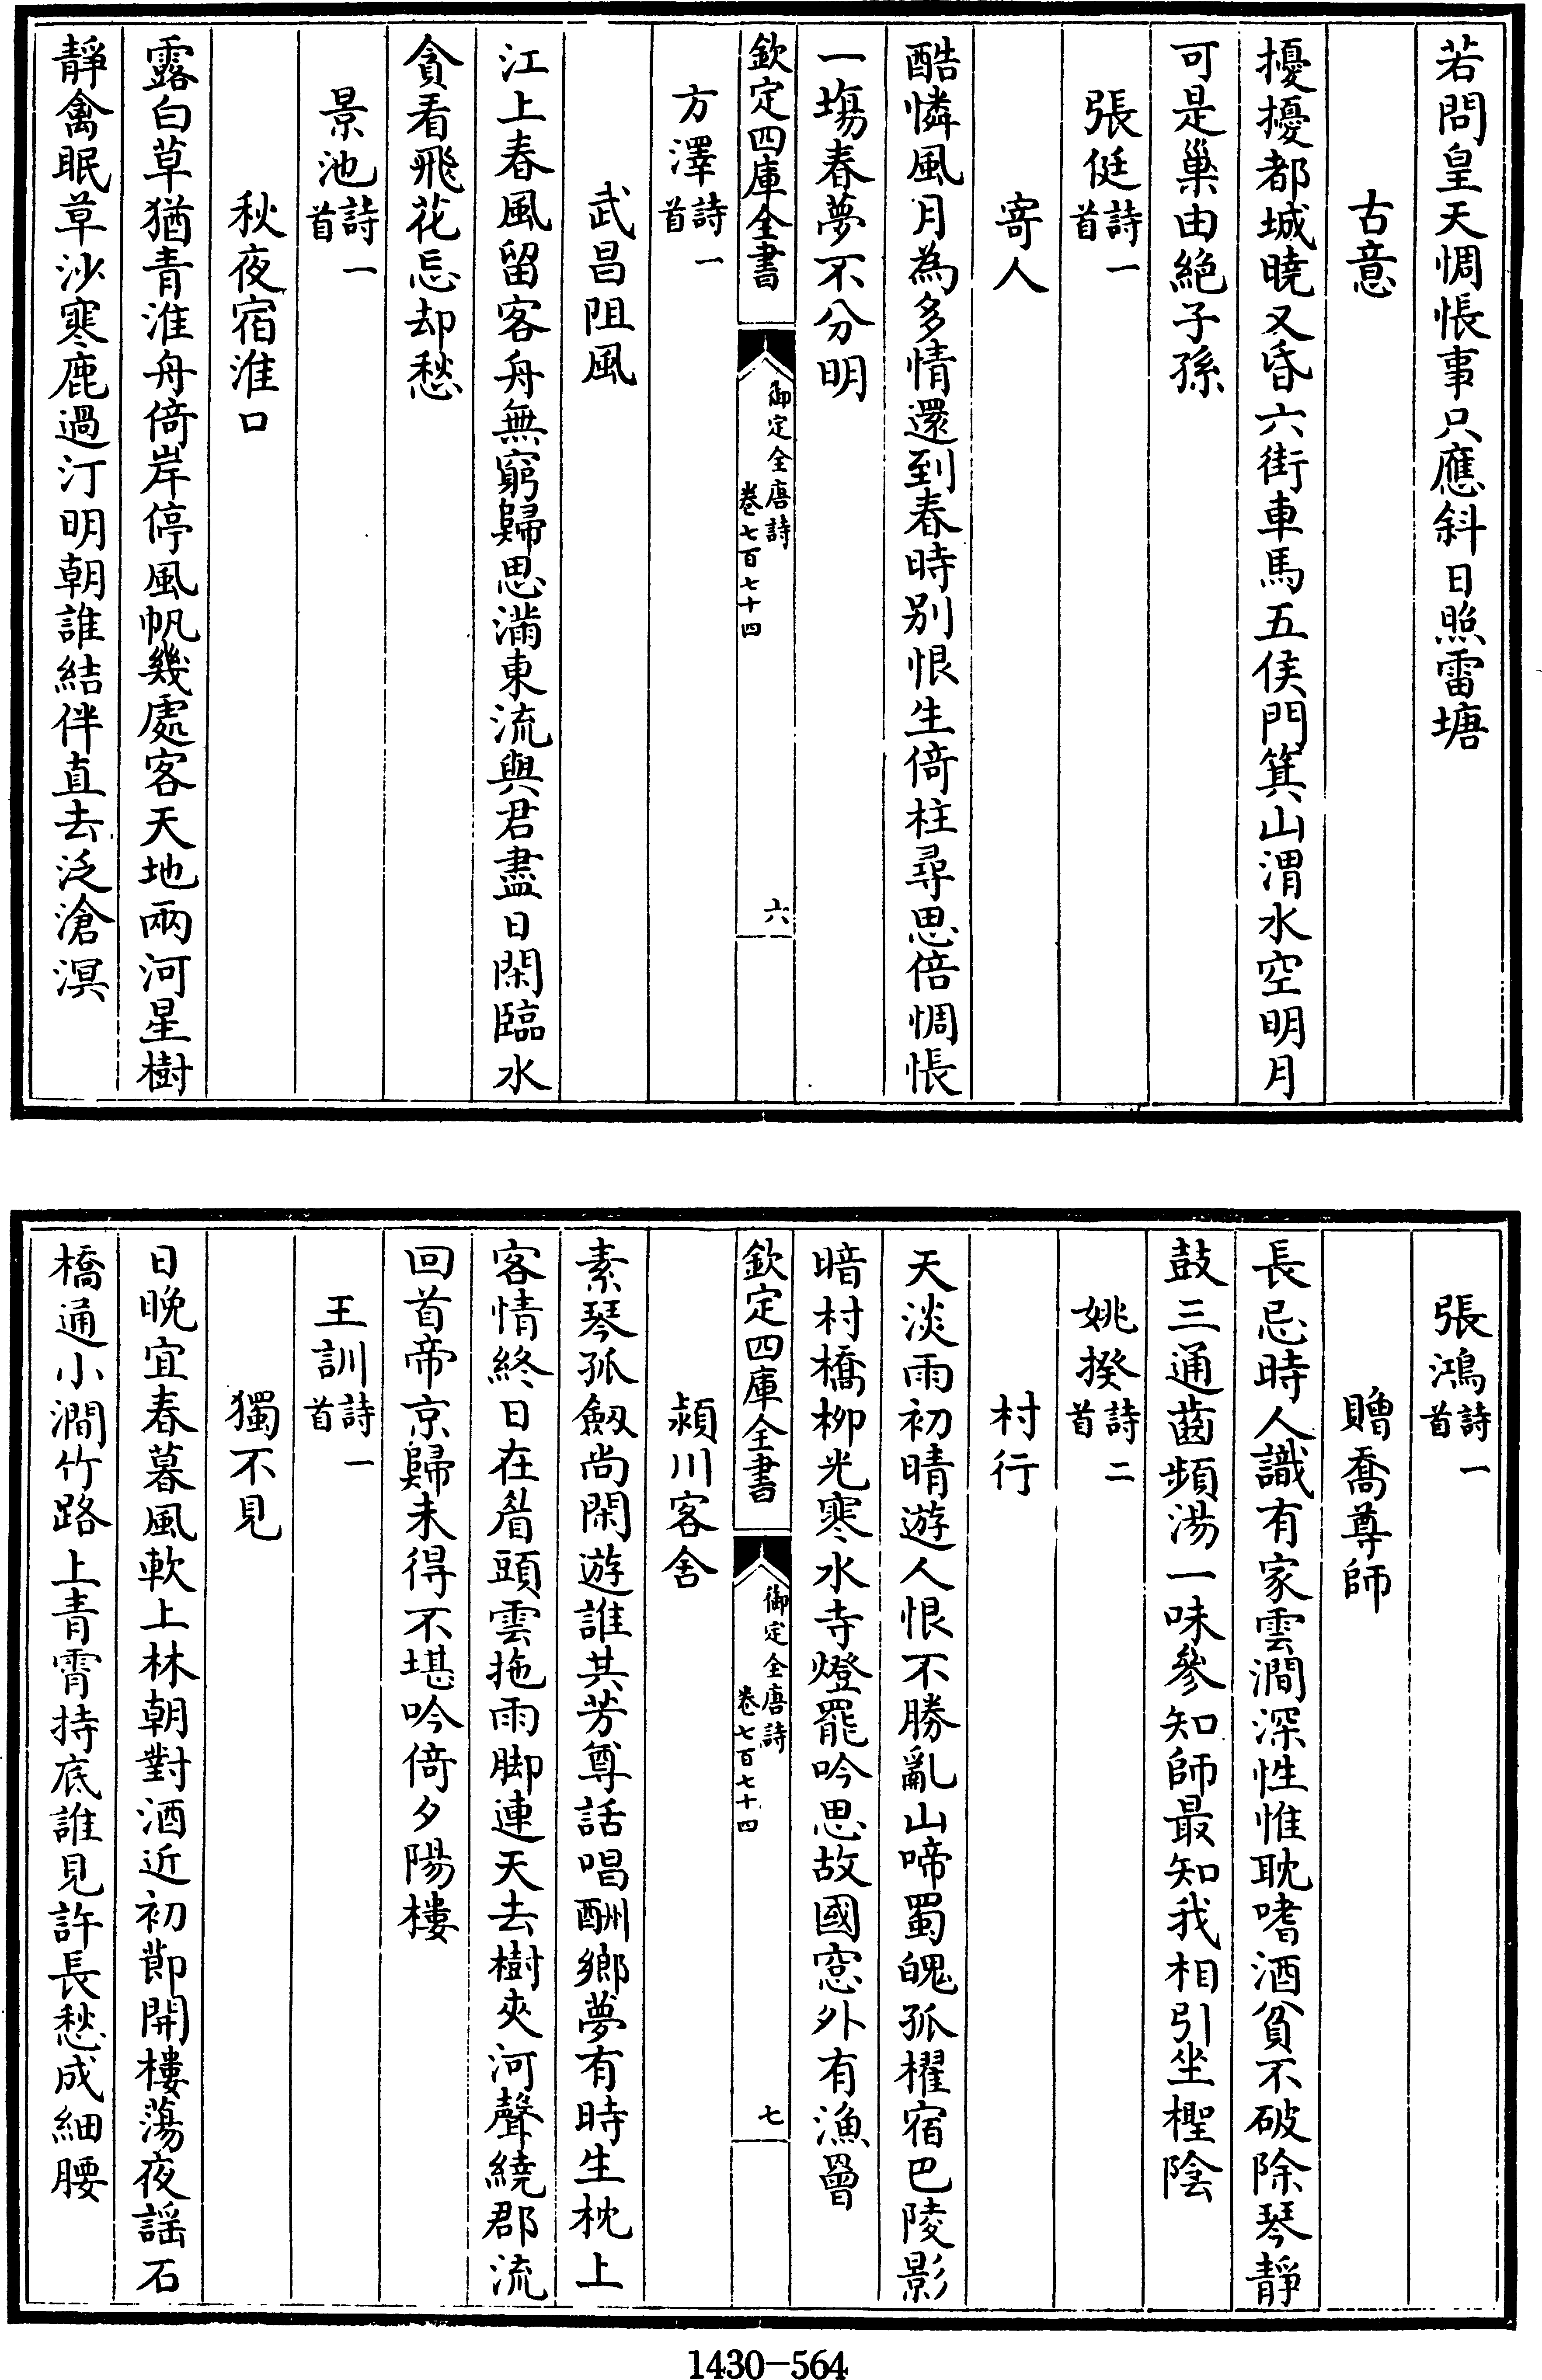 若問皇天惆悵事只應斜日照雷塘
古意
擾擾都城曉又昏六街車馬五侯門箕山渭水空明月
可是巢由絶子孫
張侹詩一首
寄人
酷憐風月為多情還到春時别恨生倚柱尋思倍惆悵
一塲春夢不分明
欽定四庫全書
御定全唐詩
卷七百七十四
六
方澤詩一首
武昌阻風
江上春風留客舟無窮歸思滿東流與君盡日閑臨水
貪看飛花忘却愁
景池詩一首
秋夜宿淮口
露白草猶青淮舟倚岸停風帆幾處客天地兩河星樹
靜禽眠草沙寒鹿過汀明朝誰結伴直去泛滄溟
張鴻詩一首
贈喬尊師
長忌時人識有家雲澗深性惟耽嗜酒貧不破除琴靜
鼓三通齒頻湯一味參知師最知我相引坐檉陰
姚揆詩二首
村行
天淡雨初晴遊人恨不勝亂山啼蜀魄孤櫂宿巴陵影
暗村橋柳光寒水寺燈罷吟思故國窓外有漁罾
欽定四庫全書
御定全唐詩
卷七百七十四
七
潁川客舍
素琴孤劒尚閑遊誰共芳尊話唱酬鄉夢有時生枕上
客情終日在眉頭雲拖雨脚連天去樹夾河聲繞郡流
回首帝京歸未得不堪吟倚夕陽樓
王訓詩一首
獨不見
日晚宜春暮風軟上林朝對酒近初節開樓蕩夜謡石
橋通小澗竹路上青霄持底誰見許長愁成細腰
1430-564